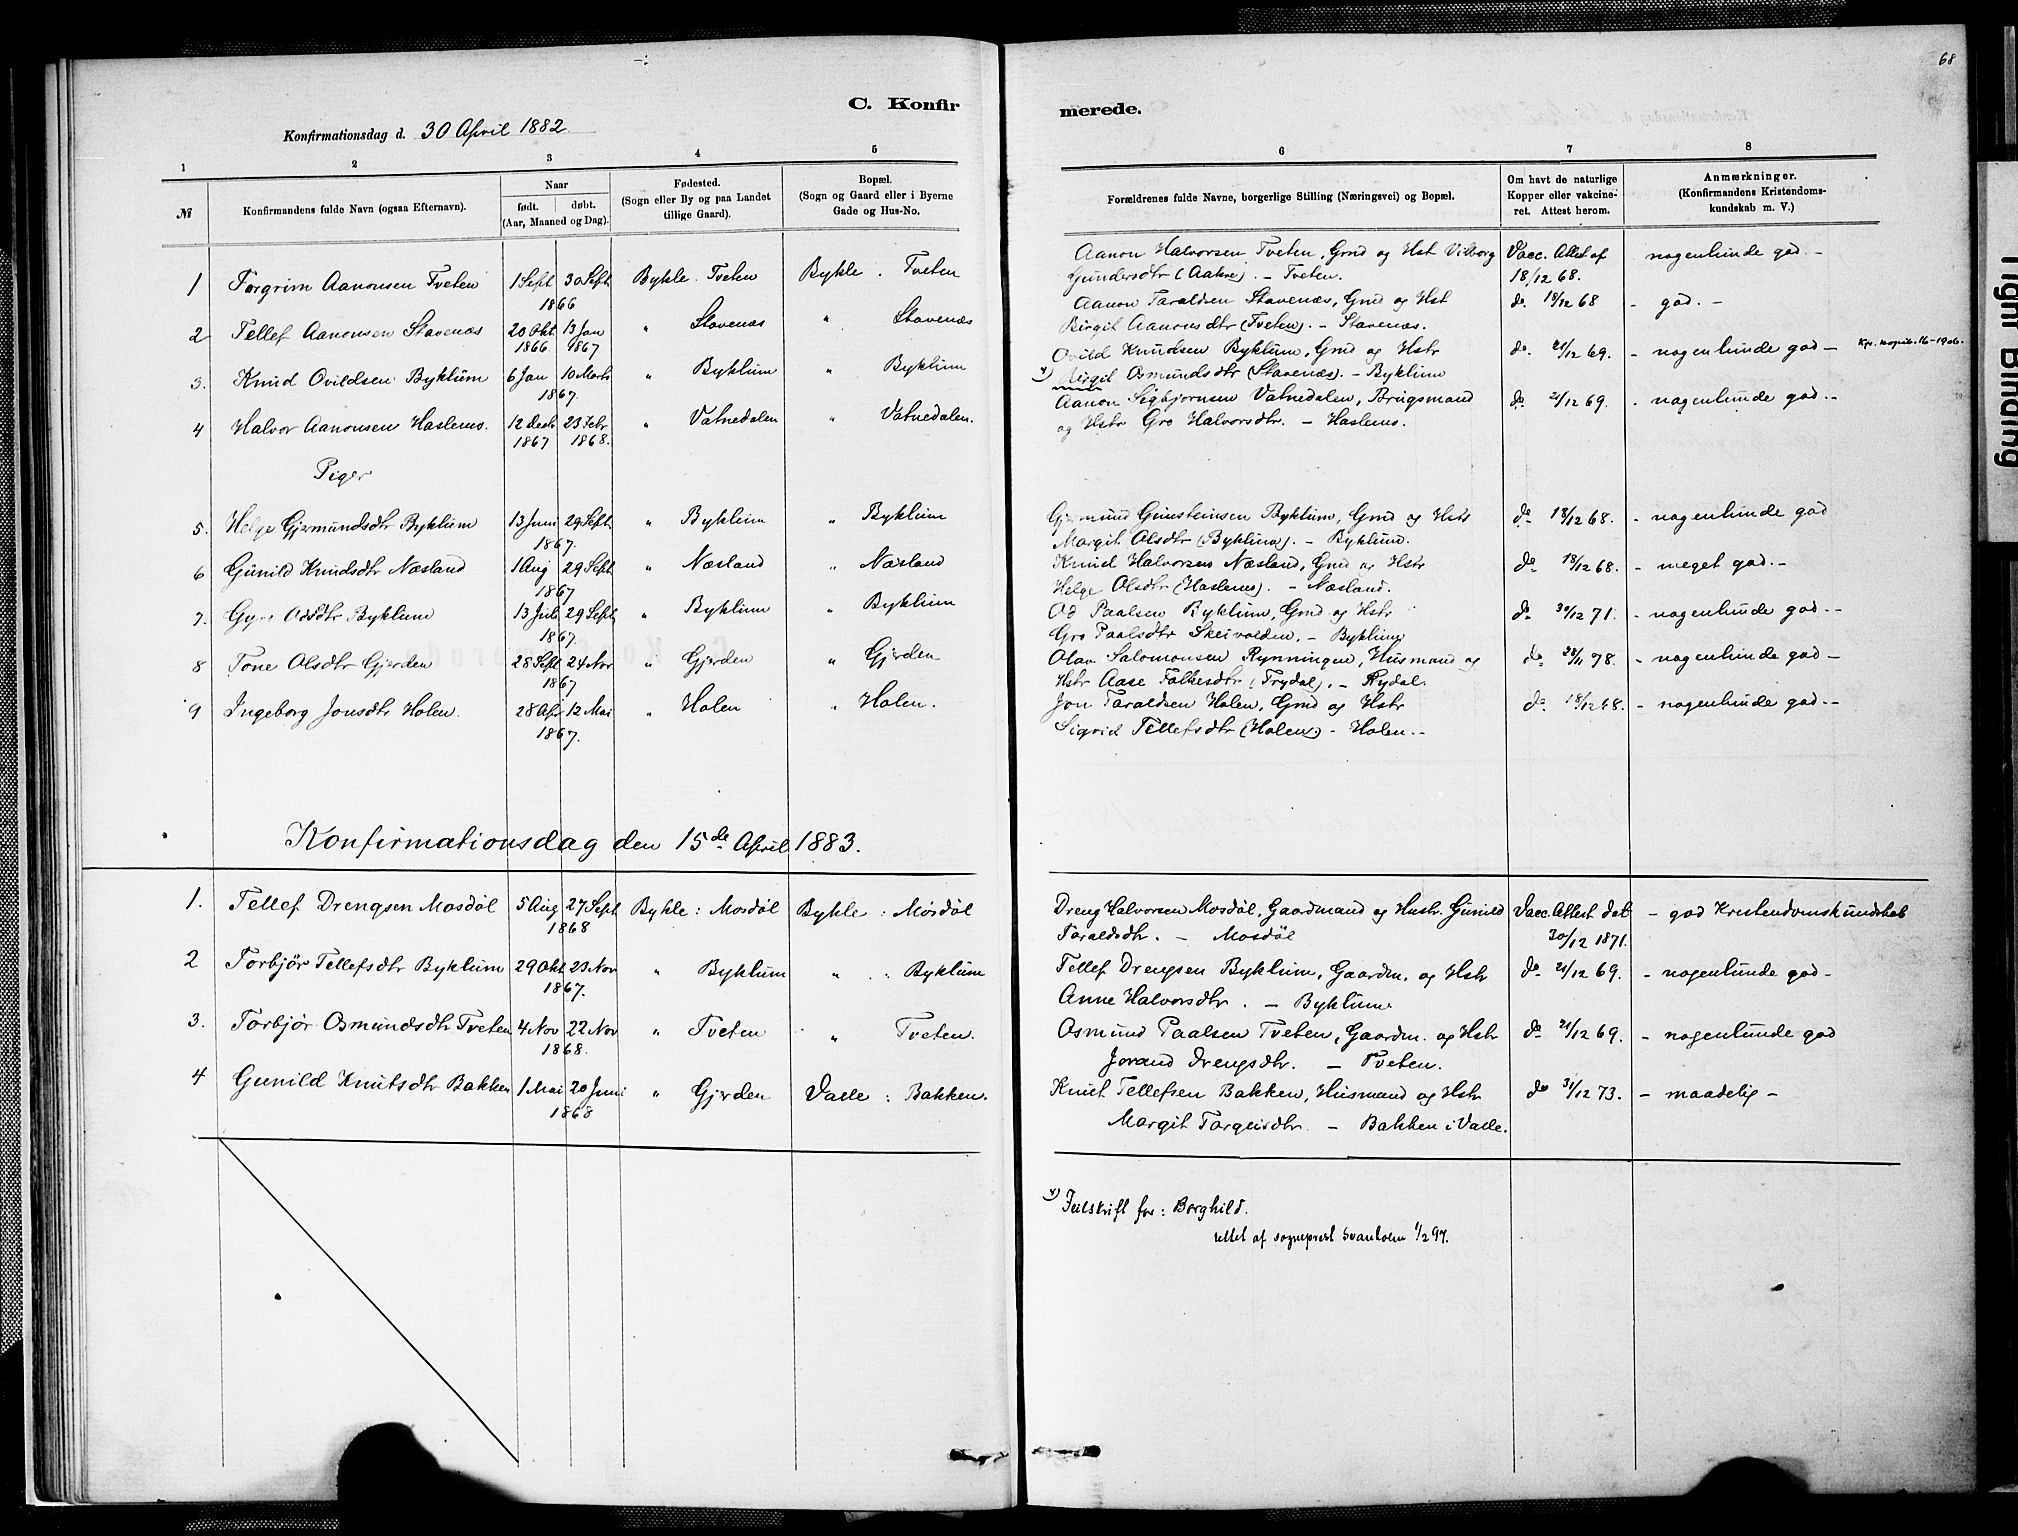 68
C. Konfirmerede.
Konfirmationsdag d. 30 April 1882
1 2 3 4 5 6 7 8
№ | Konfirmandens fulde Navn (ogsaa Efternavn). | Naar født. døbt. (Aar, Maaned og Dag). | Fødested. (Sogn eller By og paa Landet tillige Gaard). | Bopæl. (Sogn og Gaard eller i Byerne Gade og Hus-No. | Forældrenes fulde Navne, borgerlige Stilling (Næringsvei) og Bopæl. | Om havt de naturlige Kopper eller vakcineret. Attest herom. | Anmærkninger. (Konfirmandens Kristendomskundskab m. V.)
1 Torgrim Aanonsen Tveten | 1 Sept 30 Sept 1866 | Bykle . Tveten | Bykle . Tveten | Aanon Halvorsen Tveten, Gmd og Hst Vilborg | Vacc. Attet af | nogenlunde god. -
Gundersdtr (Aakre). - Tveten. | 18/12 68.
2 Tellef Aanonsen Stavenæs | 20 Okt 1866 13 Jan 1867 | " Stavenæs | " Stavenæs | Aanon Taraldsen Stavenæs, Gmd og Hst | do. 18/12 68 | - god. -
Birgit Aanonsdtr (Tveten). - Stavenæs.
3. Knud Ovildsen Byklum | 6 Jan 10 Marts 1867. | " Byklum | " Byklum | Ovild Knudsen Byklum, Gmd og Hstr | do. 21/12 69. | - nogenlunde god -
x) Birgit Osmundsdtr (Stavenæs). - Byklum
4 Halvor Aanonsen Haslemo. | 12 Decb 1867 23 Febr 1868. | " Vatnedalen | " Vatnedalen. | Aanon Sigbjornsen Vatnedalen, Brugsmand | do. 21/12 69. | - nogenlunde god. -
og Hstr Gro Halvorsdtr. - Haslemo.
Piger
5. Helge Gjermundsdtr Byklum | 13 Juni 29 Sept 1867. | " Byklum | " Byklum | Gjermund Gunsteinsen Byklum, Gmd og Hstr | do. 18/12 68. | - nogenlunde god
Margit Olsdtr (Byklum). - Byklum.
6 Gunild Knudsdtr Næsland | 1 Aug 29 Sept 1867 | " Næsland | " Næsland | Knud Halvorsen Næsland, Gmd og Hstr | do 18/12 68. | - meget god. -
Helge Olsdtr (Haslemo). - Næsland.
7. Gyro Odsdtr Byklum | 13 Juli 29 Sept 1867. | " Byklum | " Byklum | Od Paalsen Byklum, Gmd og Hstr | do 30/12 71. | - nogenlunde god. -
Gro Paalsdtr Skeivolden. - Byklum
8 Tone Olsdtr Gjerden | 28 Sept 24 Nov 1867 | " Gjerden | " Gjerden | Olav Salomonsen Rynningen, Husmand og | do 28/11 78. | - nogenlunde god -
Hstr Aase Folkesdtr (Trydal). - Rydal.
9 Ingeborg Jonsdtr Holen. | 28 Apr 12 Mai 1867. | " Holen | " Holen. | Jon Taraldsen Holen, Gmd og Hstr | do. 18/12 68. | - nogenlunde god. -
Sigrid Tellefsdtr (Holen) - Holen. -
Konfirmationsdag den 15de April 1883.
1. Tellef Drengsen Mosdøl | 5 Aug 27 Sept 1868 | Bykle : Mosdøl | Bykle : Mosdøl | Dreng Halvorsen Mosdøl, Gaardmand og Hustr. Gunild | Vacc. Attest dat | - god Kristendomskundskab
Taraldsdtr. - Mosdøl | 30/12 1871.
2 Torbjør Tellefsdtr Byklum | 29 Okt 23 Nov 1867. | " Byklum | " Byklum | Tellef Drengsen Byklum, Gaardm. og Hstr | do 21/12 69. | - nogenlunde god -
Anne Halvorsdtr. - Byklum.
3. Torbjør Osmundsdtr Tveten | 4 Nov 22 Nov 1868. | " Tveten | " Tveten. | Osmund Paalsen Tveten, Gaardm. og Hstr | do 21/12 69. | - nogenlunde god
Jorand Drengsdtr. - Tveten.
4 Gunild Knutsdtr Bakken | 1 Mai 20 Juni 1868 | " Gjerden | Valle : Bakken. | Knut Tellefsen Bakken, Husmand og Hstr | do 31/12 73. | - maadelig -
Margit Torgeisdtr. - Bakken i Valle.
x) Feilskrift for : Borghild.
rettet af sogneprest Svanholm 1/2 97.
Tight Binding